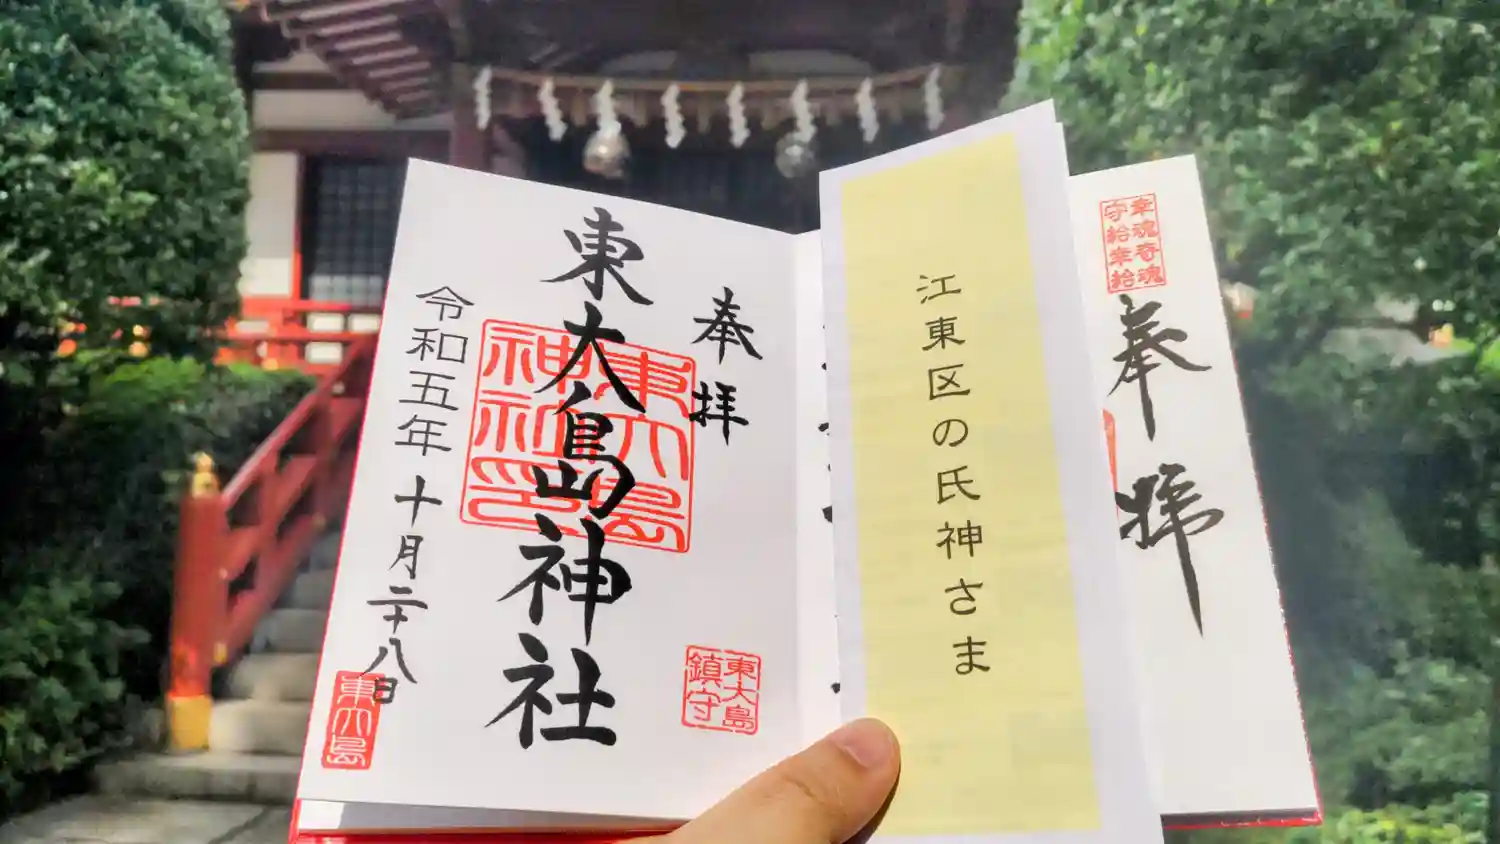 幸魂奇魂
守給幸給
奉拝
江東区の氏神さま
奉拝
東大島神社
東大島神社印
東大島
鎮守
令和五年十月二十八日
東大島